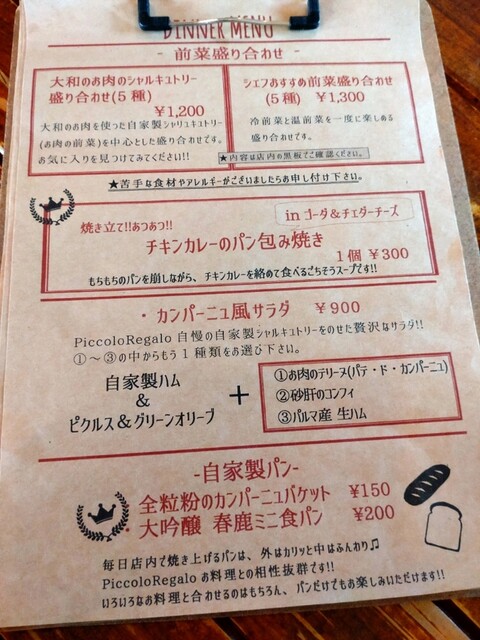 DINNER MENU
- 前菜盛り合わせ -
大和のお肉のシャルキュトリー
盛り合わせ(5種)
¥1,200
大和のお肉を使った自家製シャリュキュトリー
(お肉の前菜)を中心とした盛り合わせです。
お気に入りを見つけてみてください!!
シェフおすすめ前菜盛り合わせ
(5種) ¥1,300
冷前菜と温前菜を一度に楽しめる
盛り合わせです。
★内容は店内の黒板でご確認ください。
★苦手な食材やアレルギーがございましたらお申し付け下さい。
焼き立て!!あつあつ!!
in ゴーダ&チェダーチーズ
チキンカレーのパン包み焼き
1個 ¥300
もちもちのパンを崩しながら、チキンカレーを絡めて食べるごちそうスープです!!
・カンパーニュ風サラダ ¥900
PiccoloRegalo 自慢の自家製シャルキュトリーをのせた贅沢なサラダ!!
①～③の中からもう1種類をお選び下さい。
自家製ハム
&
ピクルス&グリーンオリーブ
+
①お肉のテリーヌ(パテ・ド・カンパーニュ)
②砂肝のコンフィ
③パルマ産 生ハム
-自家製パン-
全粒粉のカンパーニュバケット ¥150
・大吟醸 春鹿ミニ食パン ¥200
毎日店内で焼き上げるパンは、外はカリッと中はふんわり♫
PiccoloRegalo お料理との相性抜群です!!
いろいろなお料理と合わせるのはもちろん、パンだけでもお楽しみいただけます!!